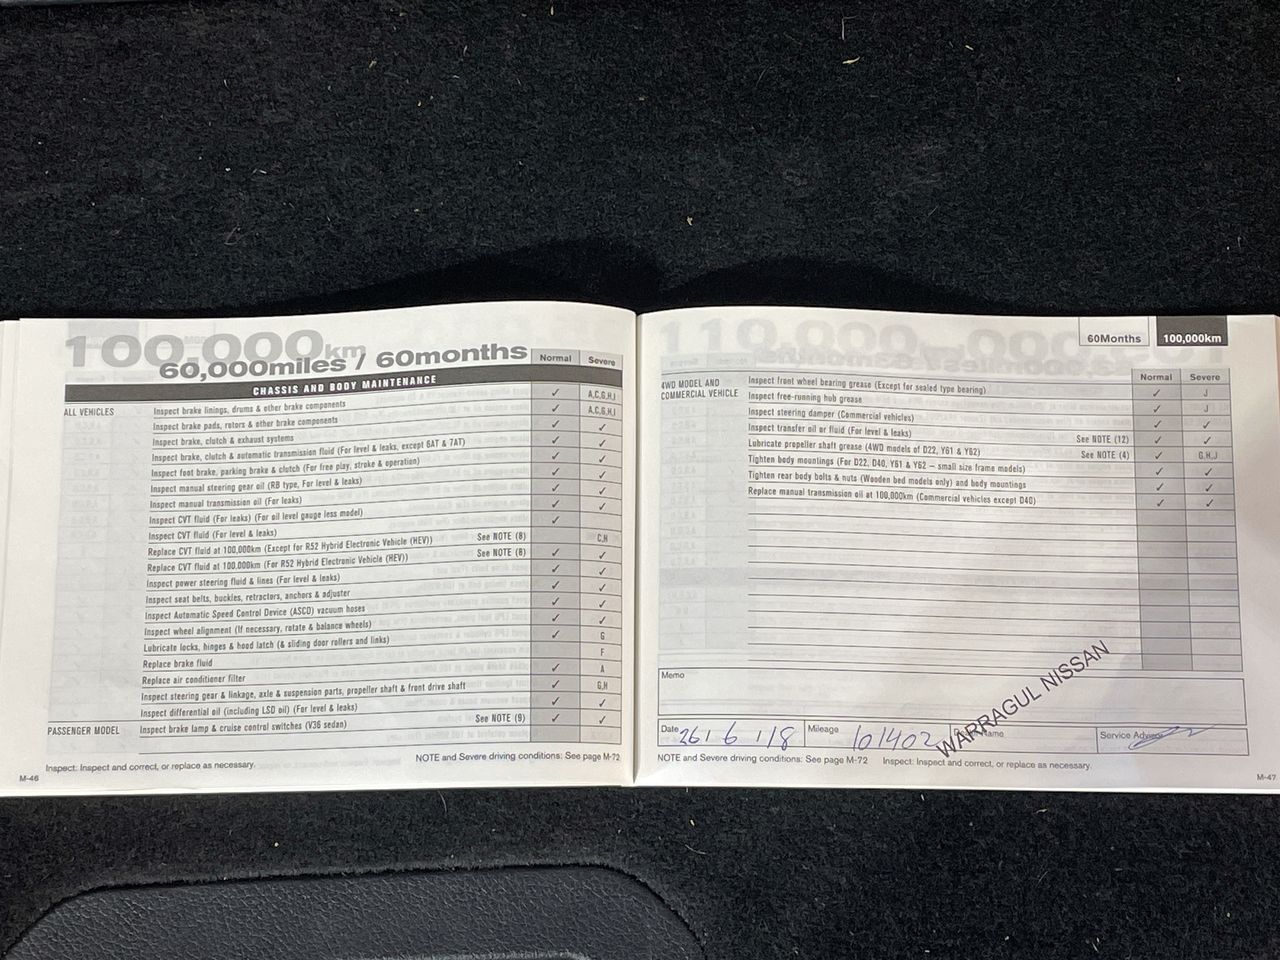 100,000km
60,000miles / 60months
Normal
Severe
CHASSIS AND BODY MAINTENANCE
ALL VEHICLES
Inspect brake linings, drums & other brake components ✓ A,C,G,H,J
Inspect brake pads, rotors & other brake components ✓ A,C,G,H,J
Inspect brake, clutch & exhaust systems ✓ ✓
Inspect brake, clutch & automatic transmission fluid (For level & leaks, except 6AT & 7AT) ✓ ✓
Inspect foot brake, parking brake & clutch (For free play, stroke & operation) ✓ ✓
Inspect manual steering gear oil (RB type, For level & leaks) ✓ ✓
Inspect manual transmission oil (For leaks) ✓ ✓
Inspect CVT fluid (For leaks) (For oil level gauge less model) ✓ ✓
Inspect CVT fluid (For level & leaks) ✓
Replace CVT fluid at 100,000km (Except for R52 Hybrid Electronic Vehicle (HEV)) See NOTE (8) C,H
Replace CVT fluid at 100,000km (For R52 Hybrid Electronic Vehicle (HEV)) See NOTE (8) ✓ ✓
Inspect power steering fluid & lines (For level & leaks) ✓ ✓
Inspect seat belts, buckles, retractors, anchors & adjuster ✓ ✓
Inspect Automatic Speed Control Device (ASCD) vacuum hoses ✓ ✓
Inspect wheel alignment (If necessary, rotate & balance wheels) ✓ ✓
Lubricate locks, hinges & hood latch (& sliding door rollers and links) ✓ G
Replace brake fluid F
Replace air conditioner filter ✓ A
Inspect steering gear & linkage, axle & suspension parts, propeller shaft & front drive shaft ✓ G,H
Inspect differential oil (including LSD oil) (For level & leaks) ✓ ✓
PASSENGER MODEL
Inspect brake lamp & cruise control switches (V36 sedan) See NOTE (9) ✓ ✓
Inspect: Inspect and correct, or replace as necessary.
NOTE and Severe driving conditions: See page M-72
M-46
60Months
100,000km
Normal
Severe
4WD MODEL AND
COMMERCIAL VEHICLE
Inspect front wheel bearing grease (Except for sealed type bearing) ✓ J
Inspect free-running hub grease ✓ J
Inspect steering damper (Commercial vehicles) ✓ ✓
Inspect transfer oil or fluid (For level & leaks) See NOTE (12) ✓ ✓
Lubricate propeller shaft grease (4WD models of D22, Y61 & Y62) See NOTE (4) ✓ G,H,J
Tighten body mountings (For D22, D40, Y61 & Y62 – small size frame models) ✓ ✓
Tighten rear body bolts & nuts (Wooden bed models only) and body mountings ✓ ✓
Replace manual transmission oil at 100,000km (Commercial vehicles except D40) ✓ ✓
Memo
WARRAGUL NISSAN
Date 26 / 6 / 18
Mileage 101402
Name
Service Advisor
NOTE and Severe driving conditions: See page M-72
Inspect: Inspect and correct, or replace as necessary.
M-47